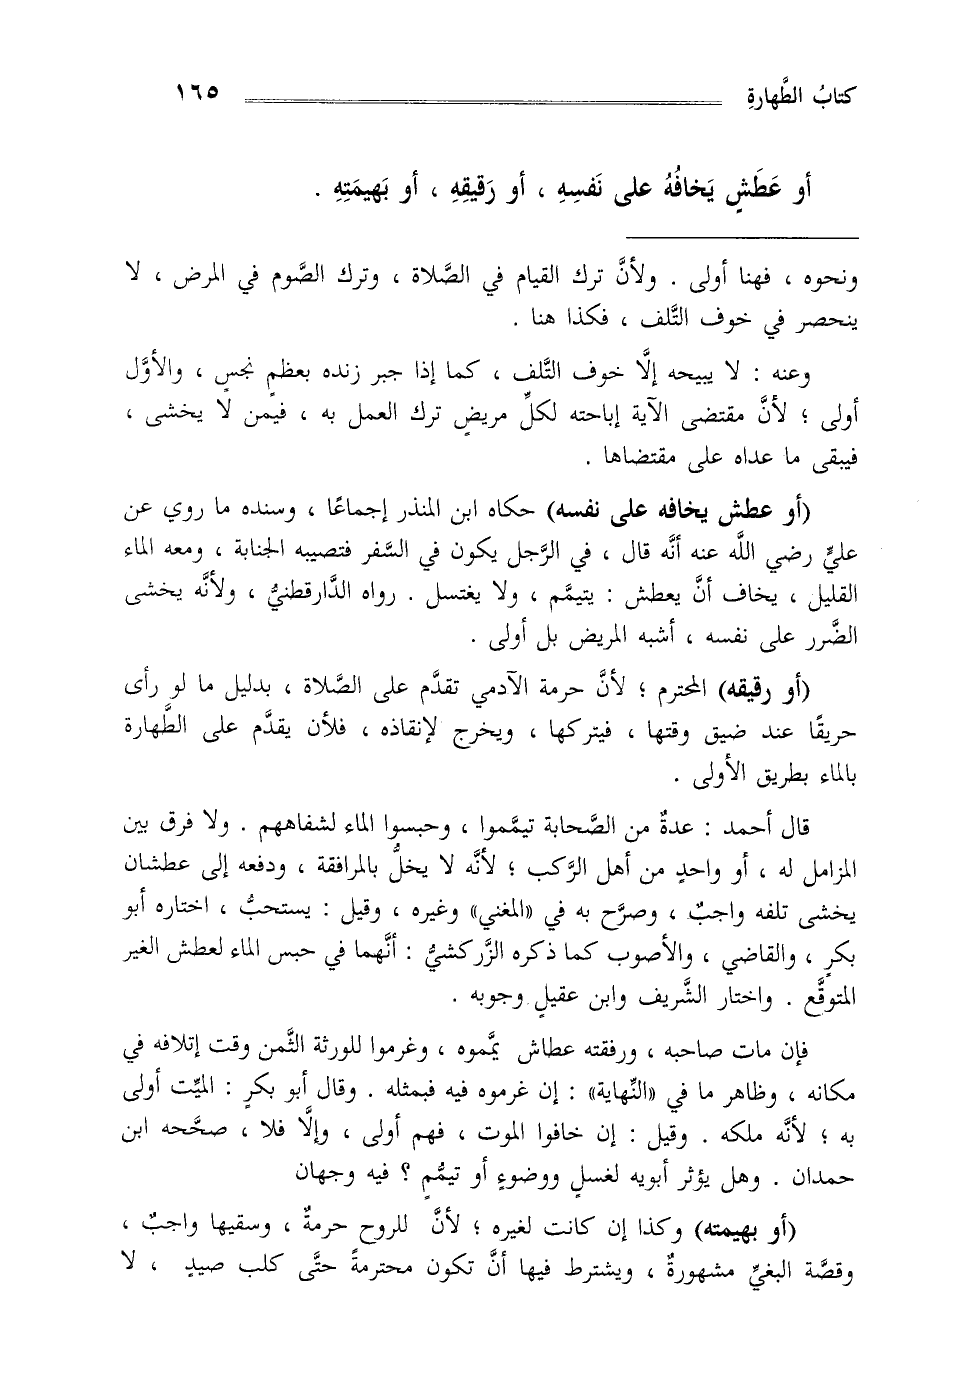 كتابُ الطَّهارةِ ١٦٥
أو عَطَشٍ يَخافُهُ على نَفسِهِ ، أو رَقيقِهِ ، أو بَهيمَتِهِ .
ونحوه ، فهنا أولى . ولأنَّ ترك القيام في الصَّلاة ، وترك الصَّوم في المرض ، لا
ينحصر في خوف التَّلف ، فكذا هنا .
وعنه : لا يبيحه إلَّا خوف التَّلف ، كما إذا جبر زنده بعظمٍ نجسٍ ، والأوَّل
أولى ؛ لأنَّ مقتضى الآية إباحته لكلِّ مريضٍ ترك العمل به ، فيمن لا يخشى ،
فيبقى ما عداه على مقتضاها .
(أو عطش يخافه على نفسه) حكاه ابن المنذر إجماعًا ، وسنده ما روي عن
عليٍّ رضي اللَّه عنه أنَّه قال ، في الرَّجل يكون في السَّفر فتصيبه الجنابة ، ومعه الماء
القليل ، يخاف أنَّ يعطش : يتيمَّم ، ولا يغتسل . رواه الدَّارقطنيُّ ، ولأنَّه يخشى
الضَّرر على نفسه ، أشبه المريض بل أولى .
(أو رقيقه) المحترم ؛ لأنَّ حرمة الآدمي تقدَّم على الصَّلاة ، بدليل ما لو رأى
حريقًا عند ضيق وقتها ، فيتركها ، ويخرج لإنقاذه ، فلأن يقدَّم على الطَّهارة
بالماء بطريق الأولى .
قال أحمد : عدةٌ من الصَّحابة تيمَّموا ، وحبسوا الماء لشفاههم . ولا فرق بين
المزامل له ، أو واحدٍ من أهل الرَّكب ؛ لأنَّه لا يخلُّ بالمرافقة ، ودفعه إلى عطشان
يخشى تلفه واجبٌ ، وصرَّح به في «المغني» وغيره ، وقيل : يستحبُّ ، اختاره أبو
بكرٍ ، والقاضي ، والأصوب كما ذكره الزَّركشيُّ : أنَّهما في حبس الماء لعطش الغير
المتوقَّع . واختار الشَّريف وابن عقيلٍ وجوبه .
فإن مات صاحبه ، ورفقته عطاش يمَّموه ، وغرموا للورثة الثَّمن وقت إتلافه في
مكانه ، وظاهر ما في «النِّهاية» : إن غرموه فيه فبمثله . وقال أبو بكرٍ : الميِّت أولى
به ؛ لأنَّه ملكه . وقيل : إن خافوا الموت ، فهم أولى ، وإلَّا فلا ، صحَّحه ابن
حمدان . وهل يؤثر أبويه لغسلٍ ووضوءٍ أو تيمُّمٍ ؟ فيه وجهان
(أو بهيمته) وكذا إن كانت لغيره ؛ لأنَّ للروح حرمةٌ ، وسقيها واجبٌ ،
وقصَّة البغيِّ مشهورةٌ ، ويشترط فيها أنَّ تكون محترمةً حتَّى كلب صيدٍ ، لا